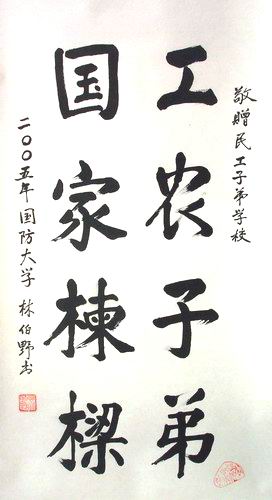 敬赠民工子弟学校
工农子弟
国家栋樑
二〇〇五年 国防大学 林伯野书